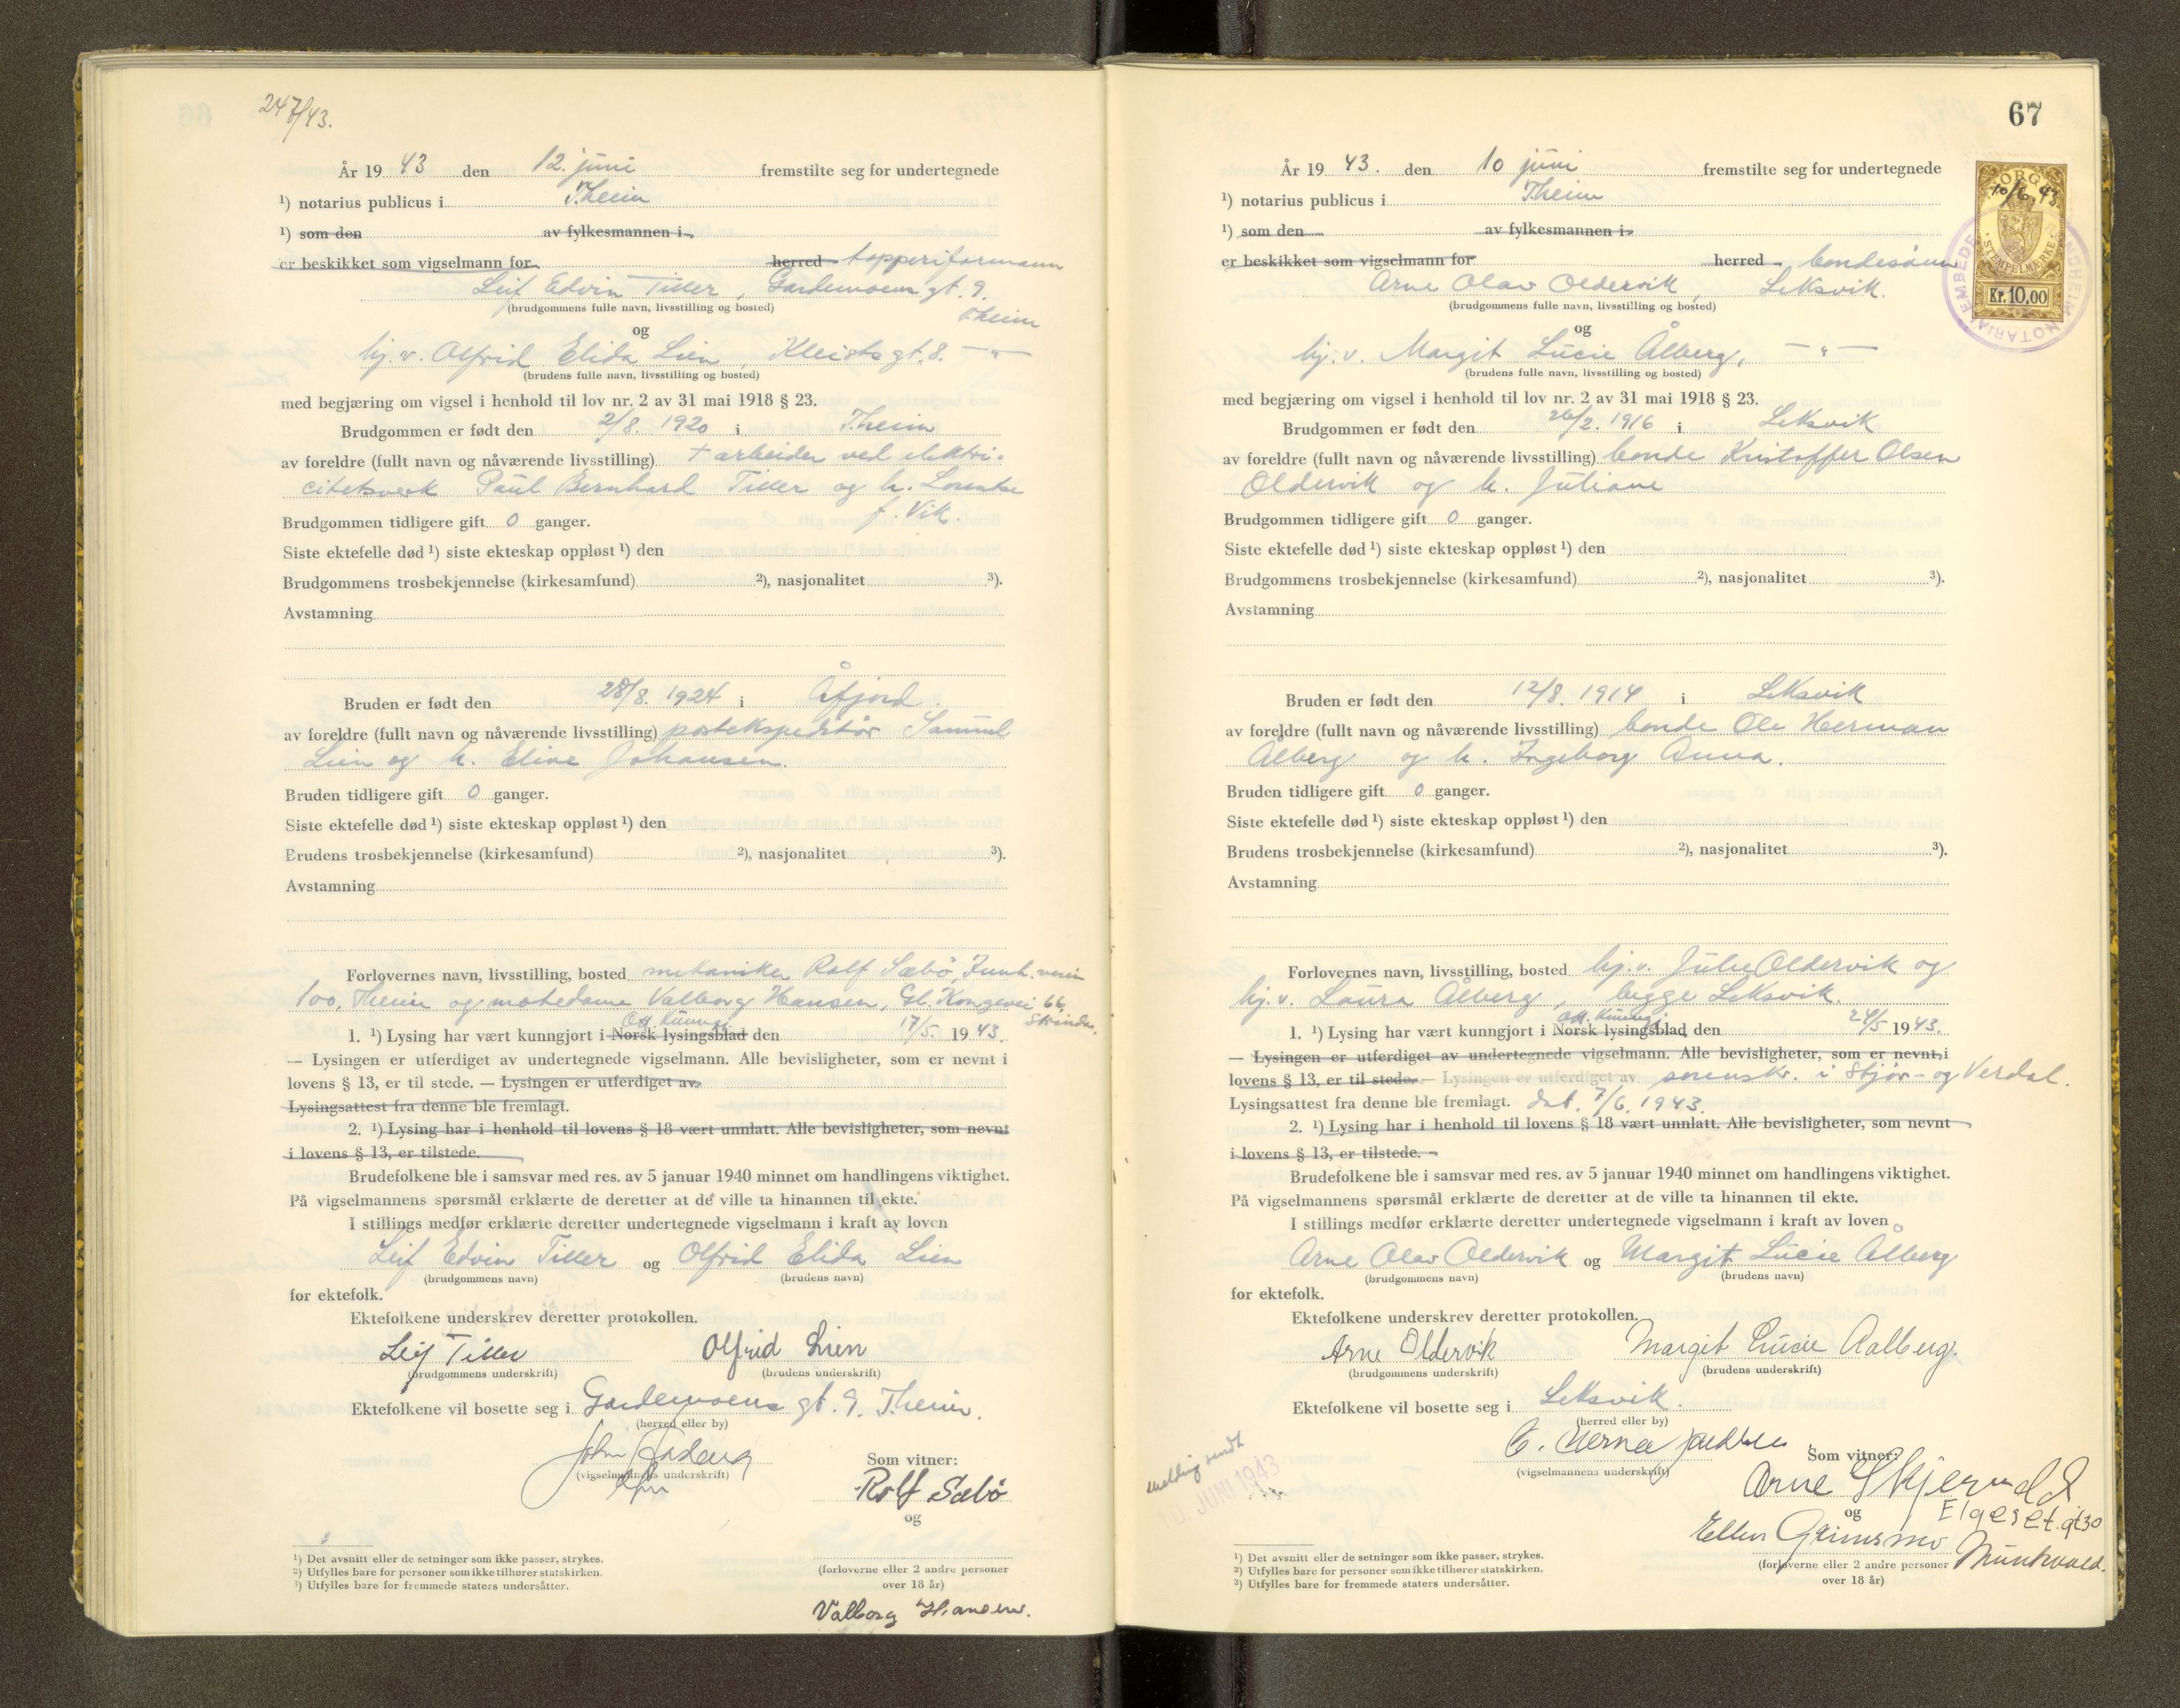 247/43.
År 19 43 den 12. juni fremstilte seg for undertegnede
¹) notarius publicus i T.heim
¹) som den av fylkesmannen i
er beskikket som vigselmann for herred tapperiformann
Leif Edvin Tiller, Gardemoens gt. 9.
(brudgommens fulle navn, livsstilling og bosted)
T.heim
og
hj. v. Olfrid Elida Lien, Kleists gt. 8. — " —
(brudens fulle navn, livsstilling og bosted)
med begjæring om vigsel i henhold til lov nr. 2 av 31 mai 1918 § 23.
Brudgommen er født den 2/8. 1920 i T.heim
av foreldre (fullt navn og nåværende livsstilling) + arbeider ved elektri-
citetsverk Paul Bernhard Tiller og h. Lorentse
f. Vik
Brudgommen tidligere gift 0 ganger.
Siste ektefelle død ¹) siste ekteskap oppløst ¹) den
Brudgommens trosbekjennelse (kirkesamfund) ²), nasjonalitet ³).
Avstamning
Bruden er født den 28/8. 1924 i Åfjord.
av foreldre (fullt navn og nåværende livsstilling) postekspeditør Samuel
Lien og h. Eline Johansen.
Bruden tidligere gift 0 ganger.
Siste ektefelle død ¹) siste ekteskap oppløst ¹) den
Brudens trosbekjennelse (kirkesamfund) ²), nasjonalitet ³).
Avstamning
Forlovernes navn, livsstilling, bosted mekaniker Rolf Sæbö, Jernb. veien
100, T.heim og motedame Valborg Hansen, Gl. Kongevei 66,
Strinda.
Off. Kunngj.
1. ¹) Lysing har vært kunngjort i Norsk lysingsblad den 17/5. 19 43.
— Lysingen er utferdiget av undertegnede vigselmann. Alle bevisligheter, som er nevnt i
lovens § 13, er til stede. — Lysingen er utferdiget av
Lysingsattest fra denne ble fremlagt.
2. ¹) Lysing har i henhold til lovens § 18 vært unnlatt. Alle bevisligheter, som nevnt
i lovens § 13, er tilstede.
Brudefolkene ble i samsvar med res. av 5 januar 1940 minnet om handlingens viktighet.
På vigselmannens spørsmål erklærte de deretter at de ville ta hinannen til ekte.
I stillings medfør erklærte deretter undertegnede vigselmann i kraft av loven
Leif Edvin Tiller og Olfrid Elida Lien
(brudgommens navn) (brudens navn)
for ektefolk.
Ektefolkene underskrev deretter protokollen.
Leif Tiller Olfrid Lien
(brudgommens underskrift) (brudens underskrift)
Ektefolkene vil bosette seg i Gardemoens gt. 9. T.heim.
(herred eller by)
John
(vigselmannens underskrift)
Som vitner:
Rolf Sæbö
og
(forloverne eller 2 andre personer
over 18 år)
Valborg Hansen.
¹) Det avsnitt eller de setninger som ikke passer, strykes.
²) Utfylles bare for personer som ikke tilhører statskirken.
³) Utfylles bare for fremmede staters undersåtter.
67
NORGE
10/6. 43
STEMPELMERKE
Kr. 10,00
År 19 43. den 10 juni fremstilte seg for undertegnede
¹) notarius publicus i T.heim
¹) som den av fylkesmannen i
er beskikket som vigselmann for herred bondesönn
Arne Olav Oldervik, Leksvik.
(brudgommens fulle navn, livsstilling og bosted)
og
hj. v. Margit Lucie Ålberg, — " —
(brudens fulle navn, livsstilling og bosted)
med begjæring om vigsel i henhold til lov nr. 2 av 31 mai 1918 § 23.
Brudgommen er født den 26/2. 1916 i Leksvik
av foreldre (fullt navn og nåværende livsstilling) bonde Kristoffer Olsen
Oldervik og h. Juliane
Brudgommen tidligere gift 0 ganger.
Siste ektefelle død ¹) siste ekteskap oppløst ¹) den
Brudgommens trosbekjennelse (kirkesamfund) ²), nasjonalitet ³).
Avstamning
Bruden er født den 12/8. 1914 i Leksvik
av foreldre (fullt navn og nåværende livsstilling) bonde Ole Herman
Ålberg og h. Ingeborg Anna.
Bruden tidligere gift 0 ganger.
Siste ektefelle død ¹) siste ekteskap oppløst ¹) den
Brudens trosbekjennelse (kirkesamfund) ²), nasjonalitet ³).
Avstamning
Forlovernes navn, livsstilling, bosted hj. v. Julie Oldervik og
hj. v. Laura Ålberg, begge Leksvik.
Off. Kunngj.
1. ¹) Lysing har vært kunngjort i Norsk lysingsblad den 24/5 19 43.
— Lysingen er utferdiget av undertegnede vigselmann. Alle bevisligheter, som er nevnt i
lovens § 13, er til stede. — Lysingen er utferdiget av sorenskr. i Stjör- og Verdal.
Lysingsattest fra denne ble fremlagt. dat. 7/6. 1943.
2. ¹) Lysing har i henhold til lovens § 18 vært unnlatt. Alle bevisligheter, som nevnt
i lovens § 13, er tilstede.
Brudefolkene ble i samsvar med res. av 5 januar 1940 minnet om handlingens viktighet.
På vigselmannens spørsmål erklærte de deretter at de ville ta hinannen til ekte.
I stillings medfør erklærte deretter undertegnede vigselmann i kraft av loven
Arne Olav Oldervik og Margit Lucie Ålberg
(brudgommens navn) (brudens navn)
for ektefolk.
Ektefolkene underskrev deretter protokollen.
Arne Oldervik Margit Lucie Aalberg.
(brudgommens underskrift) (brudens underskrift)
Ektefolkene vil bosette seg i Leksvik.
(herred eller by)
(vigselmannens underskrift)
melding sendt
10 JUNI 1943
Som vitner:
Arne Skjervold
og Elgeset. gt 30
Ellen Grimsmo Munkvold.
(forloverne eller 2 andre personer
over 18 år)
¹) Det avsnitt eller de setninger som ikke passer, strykes.
²) Utfylles bare for personer som ikke tilhører statskirken.
³) Utfylles bare for fremmede staters undersåtter.